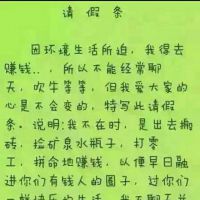 请 假 条
因环境生活所迫，我得去
赚钱..，所以不能经常聊
天，吹牛等等，但我爱大家的
心是不会变的，特写此请假
条。说明:我不在时，是出去搬
砖，捡矿泉水瓶子，打零
工，拼命地赚钱，以便早日融
进你们有钱人的圈子，过你们
一样快乐的生活，我不聊不并